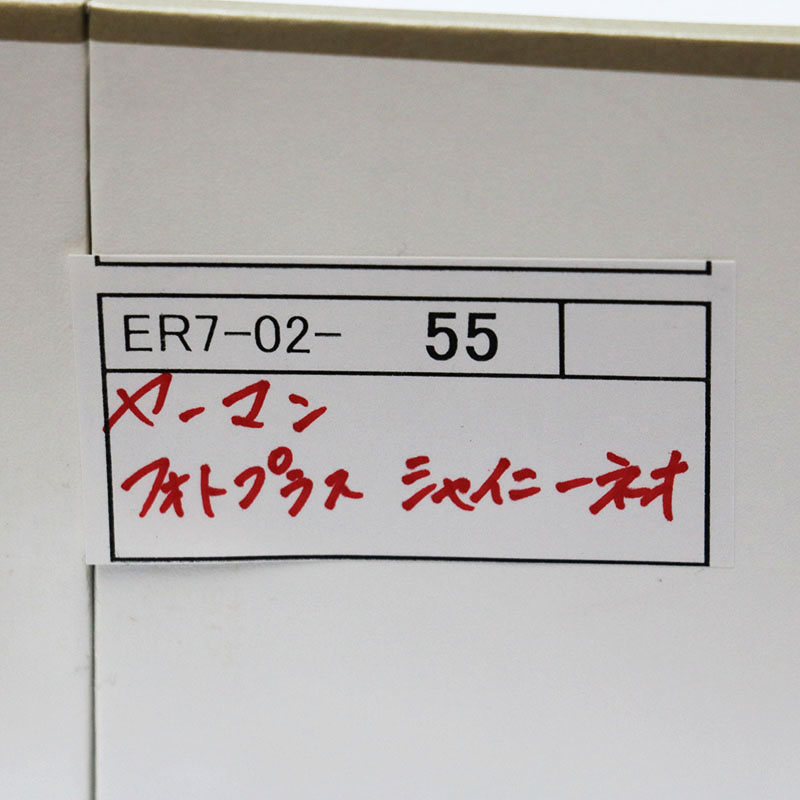 ER7-02- 55
ヤーマン
フォトプラス シャイニーネオ